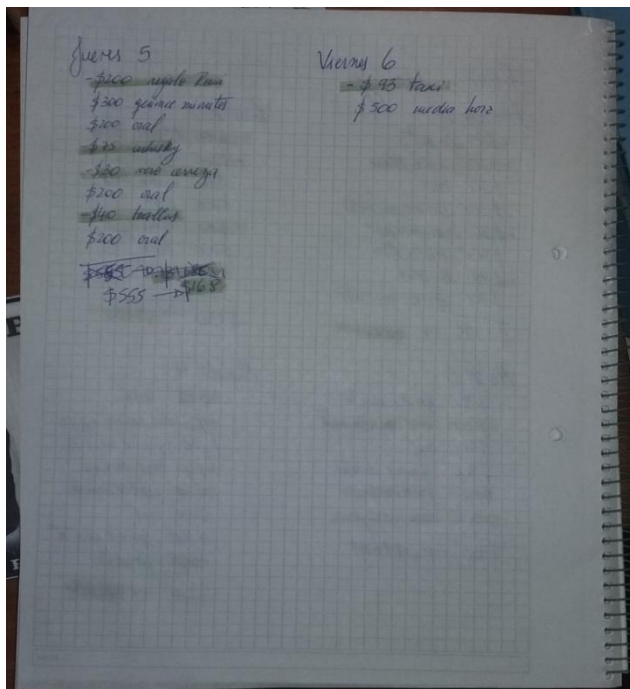 Jueves 5
-$200 regalo
$300 quince minutos
$200 oral
-$75 whisky
-$30 cerveza
$200 oral
-$40
$200 oral
$555 → $168
Viernes 6
-$93 taxi
$500 media hora